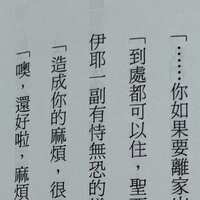 「……你如果要離家出
「到處都可以住，聖
伊耶一副有恃無恐的
「造成你的麻煩，很
「噢，還好啦，麻煩